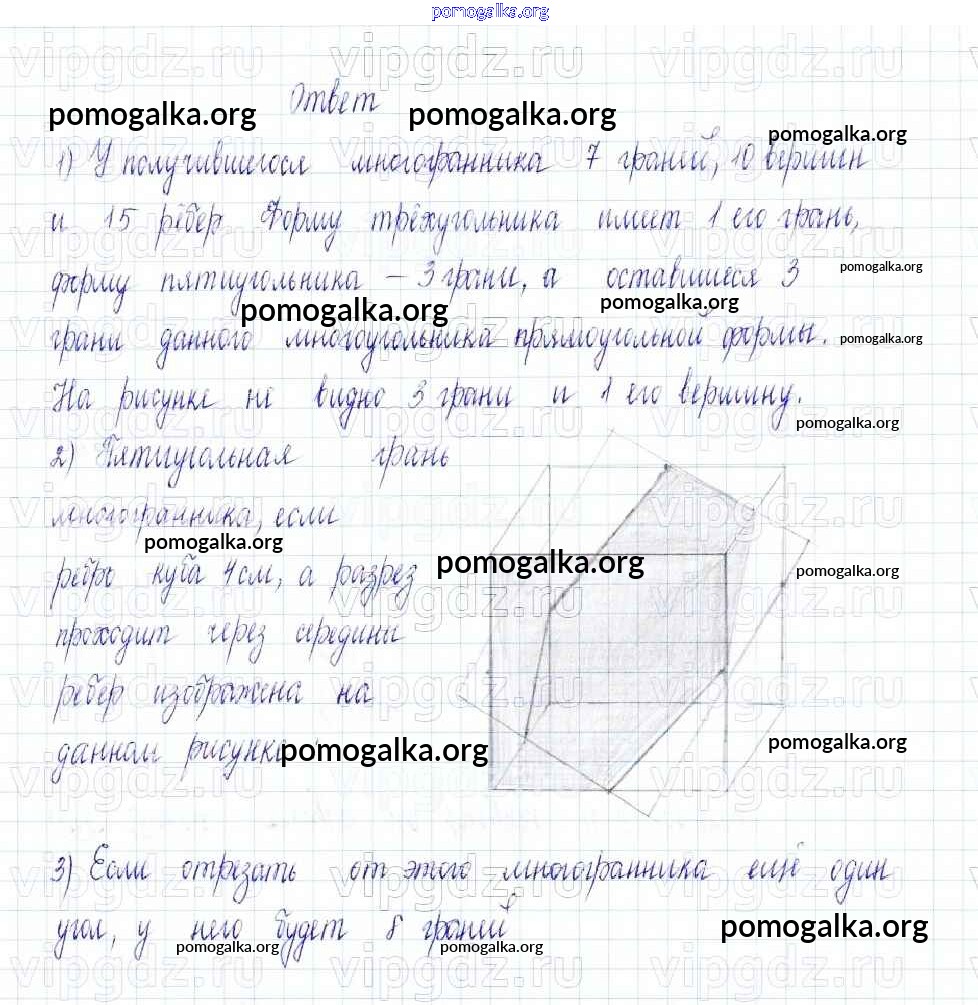 pomogalka.org
vipgdz.ru vipgdz.ru vipgdz.ru
Ответ
pomogalka.org pomogalka.org
pomogalka.org
1) У получившегося многогранника 7 граней, 10 вершин
и 15 рёбер Форму трёхугольника имеет 1 его грань,
форму пятиугольника – 3 грани, а оставшиеся 3
pomogalka.org
pomogalka.org pomogalka.org
грани данного многоугольника прямоугольной формы.
pomogalka.org
На рисунке не видно 3 грани и 1 его вершину.
pomogalka.org
2) Пятиугольная грань
многогранника, если
pomogalka.org
ребро куба 4 см, а разрез
pomogalka.org pomogalka.org
проходит через середини
ребер изображена на
данном рисунке
pomogalka.org pomogalka.org
3) Если отрезать от этого многогранника ещё один
угол, у него будет 8 граней
pomogalka.org pomogalka.org pomogalka.org